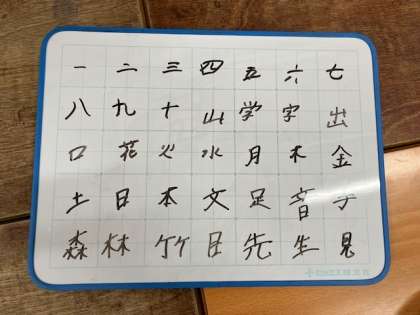 一 二 三 四 五 六 七
八 九 十 山 学 字 出
口 花 火 水 月 木 金
土 日 本 文 足 音 子
森 林 竹 目 先 生 見